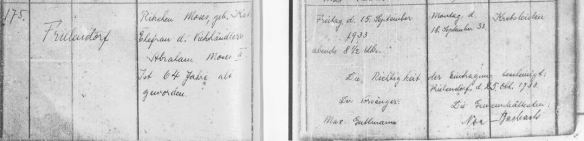 175.
Frielendorf
Rikchen Moses, geb. Kat
Ehefrau d. Viehhändlers
Abraham Moses II
Ist 64 Jahre alt
geworden.
Freitag d. 15. September
1933
abends 8 1/2 Uhr.
Montag d.
18. September 33.
Krebsleiden
Die Richtigkeit der Eintragung bescheinigt:
Frielendorf, d. 25 Okt. 1933.
Der Vorsänger:
Die Gemeindeältesten:
Max Guttmann